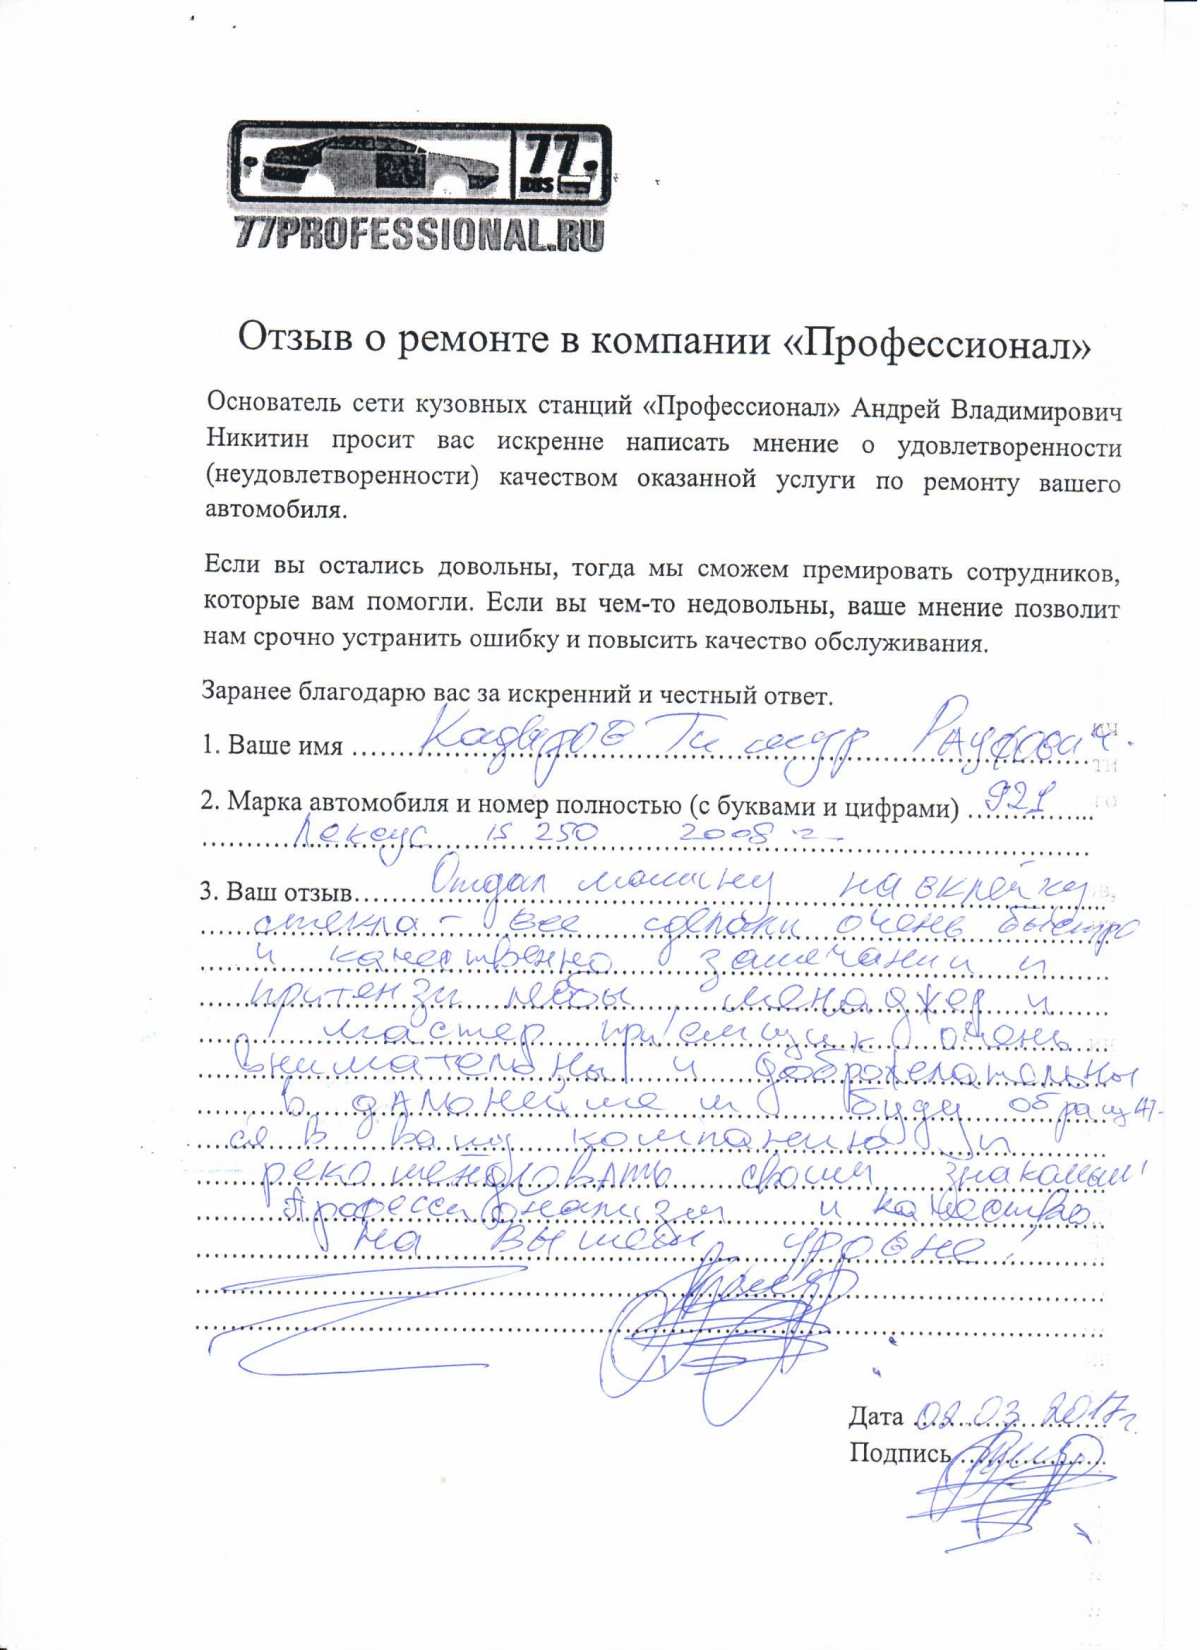 77
BBS
77PROFESSIONAL.RU
Отзыв о ремонте в компании «Профессионал»
Основатель сети кузовных станций «Профессионал» Андрей Владимирович
Никитин просит вас искренне написать мнение о удовлетворенности
(неудовлетворенности) качеством оказанной услуги по ремонту вашего
автомобиля.
Если вы остались довольны, тогда мы сможем премировать сотрудников,
которые вам помогли. Если вы чем-то недовольны, ваше мнение позволит
нам срочно устранить ошибку и повысить качество обслуживания.
Заранее благодарю вас за искренний и честный ответ.
1. Ваше имя Тимур Рауфович.
2. Марка автомобиля и номер полностью (с буквами и цифрами) 921
Лексус is 250 2008 г
3. Ваш отзыв Отдал машину на вклейку
стекла - все сделали очень быстро
и качественно замечании и
притензи небы, менаджед и
мастер приемщик очень
внимательны и доброжелательны
в далонейшем буду обращат-
ся в вашу компанию и
рекомендовать своим знакомым!
Професcионализм и качество
на вышем уровне!
Дата 02.03 2017г.
Подпись